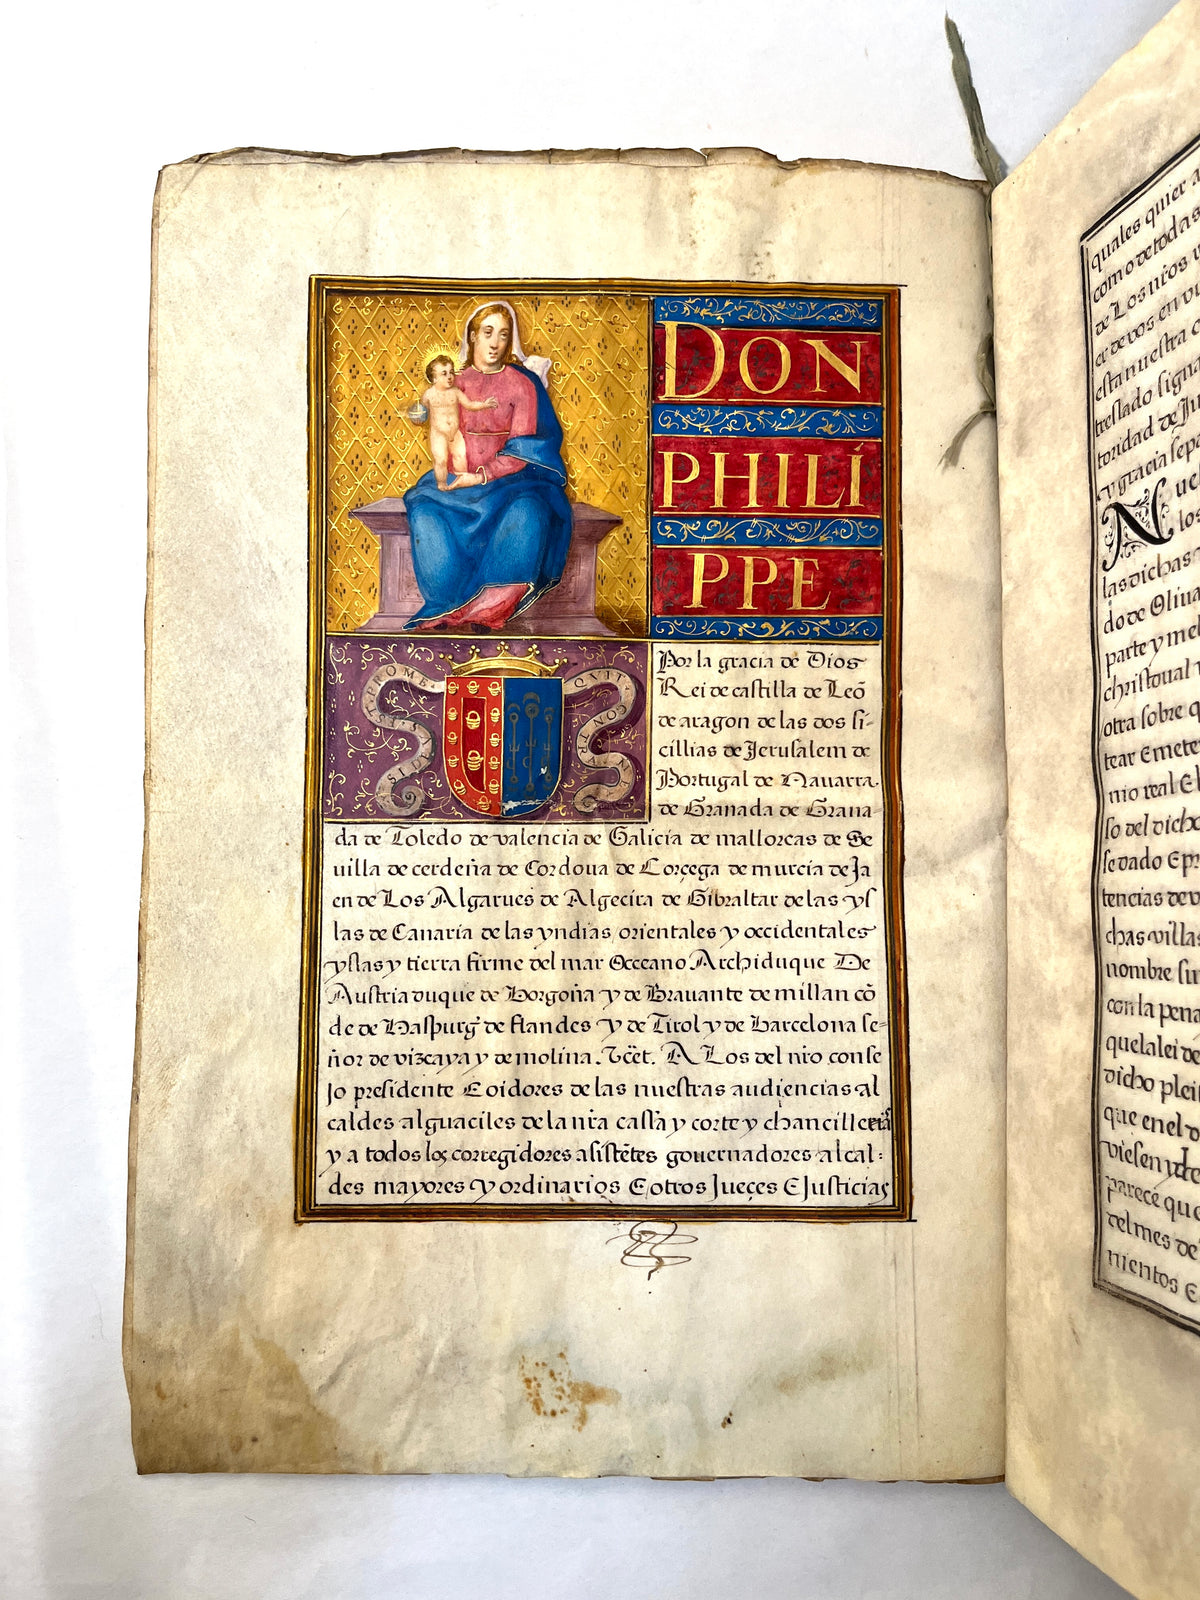 DON
PHILI
PPE
SI DEVS PRO NOB
QVIT CONTRA NS
Por la gracia de Dios
Rei de castilla de Leō
de aragon de las dos si-
cillias de Jerusalem de
Portugal de Nauarra.
de Granada de Grana
da de Toledo de valencia de Galicia de mallorcas de Se
uilla de cerdeña de Cordoua de Corçega de murcia de Ja
en de Los Algarues de Algecira de Gibraltar de las ys
las de Canaria de las yndias orientales y occidentales
yslas y tierra firme del mar Occeano Archiduque De
Austria duque de Borgoña y de Brauante de millan cō
de de Haspurg de flandes y de Tirol y de Barcelona se=
ñor de vizcaya y de molina. Etcet. A Los del nr̄o conse
Jo presidente E oidores de las nuestras audiencias al
caldes alguaciles de la nr̄a cassa y corte y chancillerias
y a todos los corregidores asistētes gouernadores alcal=
des mayores y ordinarios E otros Jueçes E Justicias
quales quier a
como de todas
de Los nr̄os
er de vos en
esta nuestra
treslado signa
toridad de Ju
y gracia sepa
Nue
los
las dichas
do de Oliua
parte y mel
christoual
otra sobre q
tear E mete
nio real E
so del dicho
se dado E pr
tencias de v
chas villas
nombre su
con la pena
que la lei de
dicho plei
que en el
viesen y de
parece que
del mes de
mientos E